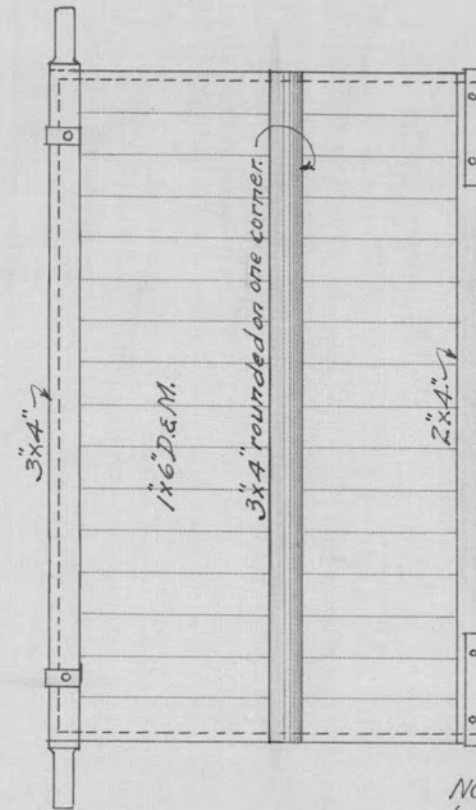 3"x4"
1"x6" D.&M.
3"x4" rounded on one corner.
2"x4"